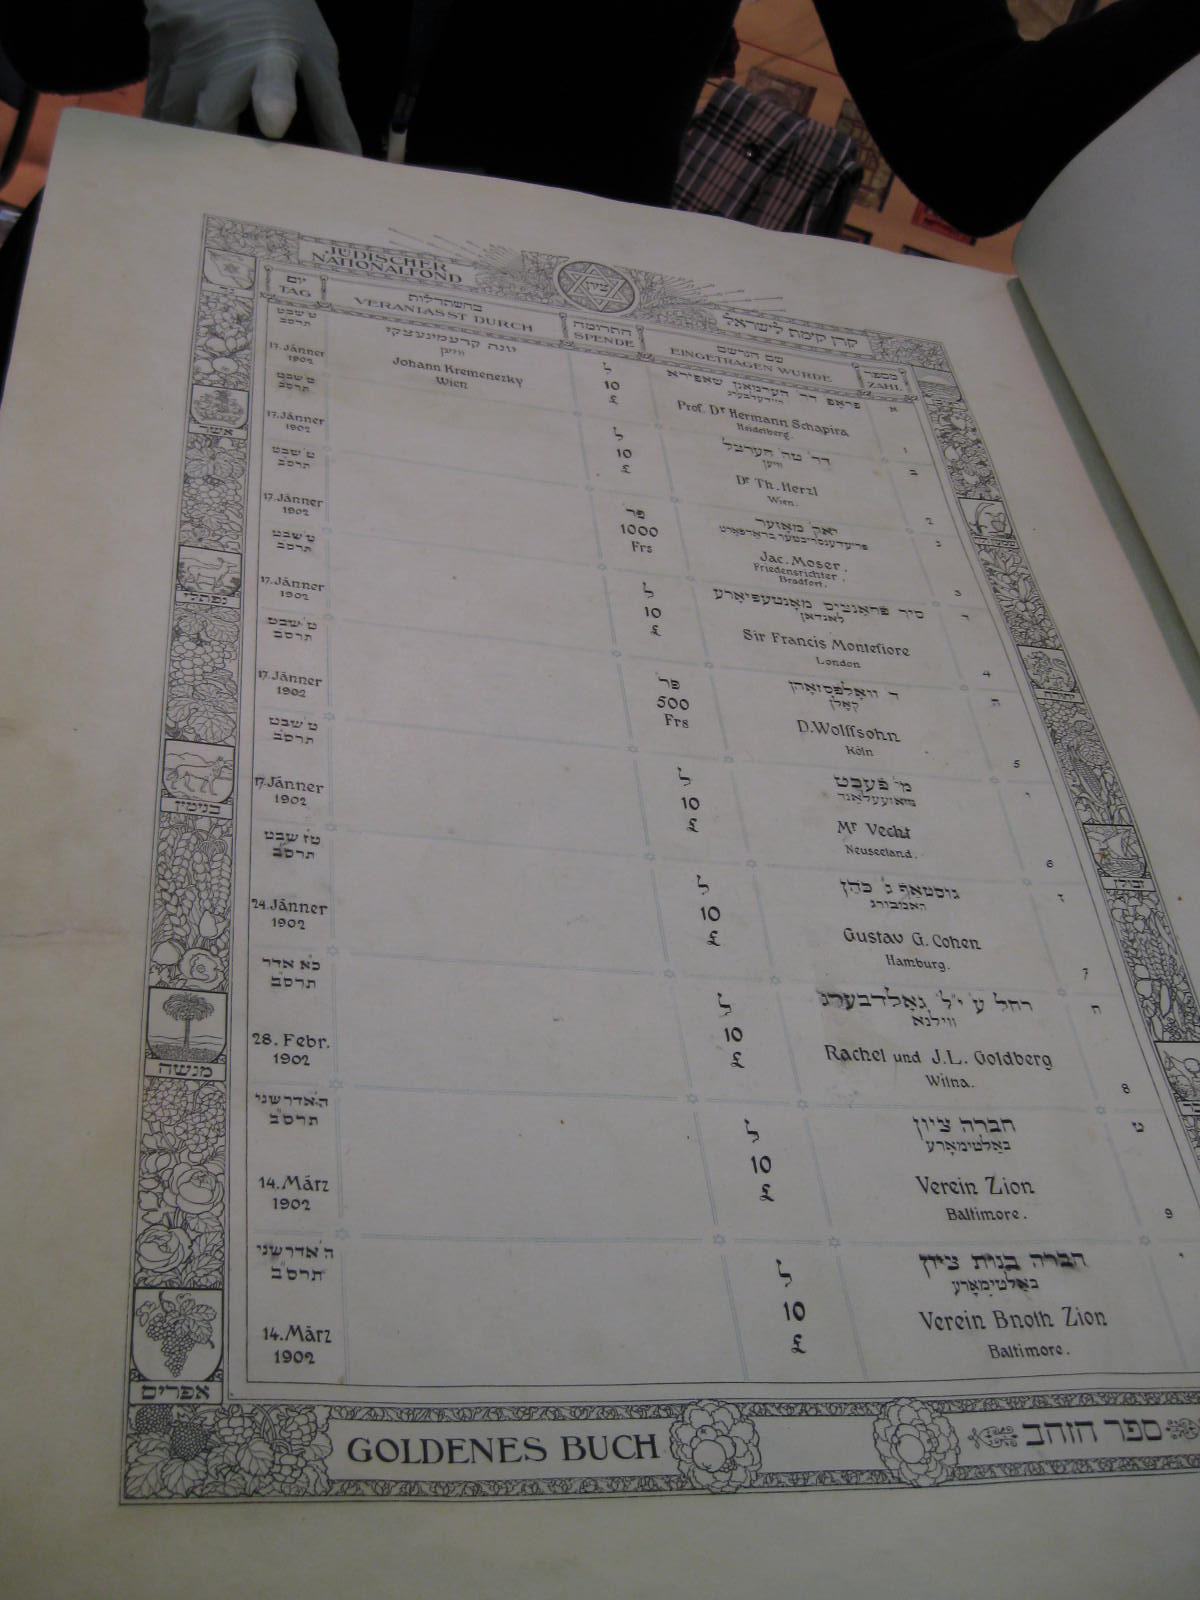 JÜDISCHER
NATIONALFOND
ציון
קרן קימת לישראל
יום
TAG
בהשתדלות
VERANLASST DURCH
התרומה
SPENDE
שם הנרשם
EINGETRAGEN WURDE
מספר
ZAHL
ט' שבט
תרס"ב
17. Jänner
1902
יונה קרעמינעצקי
וויען
Johann Kremenezky
Wien
ל
10
£
פראָפ דר הערמאַן שאַפירא
היידעלבערג
Prof. Dr Hermann Schapira
Heidelberg.
א
1
ט' שבט
תרס"ב
17. Jänner
1902
ל
10
£
דר' טה' הערצל
וויען
Dr Th. Herzl
Wien.
ב
2
ט' שבט
תרס"ב
17. Jänner
1902
פר'
1000
Frs
יאַק מאָזער
פריעדענסריכטער בראַדפאָרט
Jac. Moser.
Friedensrichter.
Bradfort.
ג
3
ט' שבט
תרס"ב
17. Jänner
1902
ל
10
£
סיר פראַנציס מאָנטעפיאָרע
לאָנדאָן
Sir Francis Montefiore
London
ד
4
ט' שבט
תרס"ב
17. Jänner
1902
פר'
500
Frs
ד וואָלפסזאָהן
קאָלן
D. Wolffsohn
Köln
ה
5
ט' שבט
תרס"ב
17. Jänner
1902
ל
10
£
מ' פעכט
Mr Vecht
Neuseeland.
ו
6
ט"ז שבט
תרס"ב
24. Jänner
1902
ל
10
£
גוסטאַף ג' כהן
האַמבורג
Gustav G. Cohen
Hamburg.
ז
7
כ"א אדר
תרס"ב
28. Febr.
1902
ל
10
£
רחל ע' י"ל גאָלדבערג
ווילנא
Rachel und J.L. Goldberg
Wilna.
ח
8
ה' אדר שני
תרס"ב
14. März
1902
ל
10
£
חברה ציון
באַלטימאָרע
Verein Zion
Baltimore.
ט
9
ה' אדר שני
תרס"ב
14. März
1902
ל
10
£
חברה בנות ציון
באַלטימאָרע
Verein Bnoth Zion
Baltimore.
י
גד
אשר
נפתלי
בנימין
מנשה
אפרים
ראובן
שמעון ולוי
יהודה
זבולן
GOLDENES BUCH
ספר הזהב